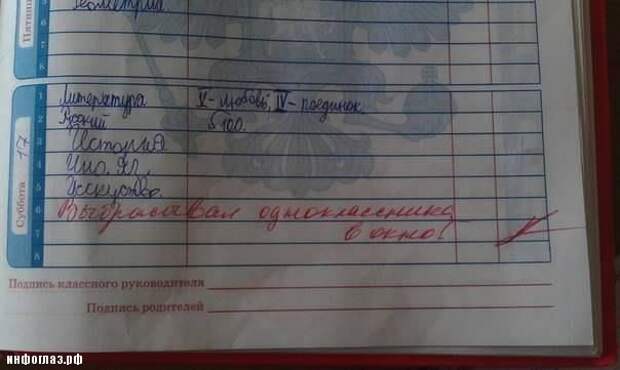 Пятница
Геометрия
6
7
8
Суббота 17
1 Литература V - любовь; IV - поединок.
2 Родной 100.
3 История
4 Ино. яз.
5 Исскуство.
6 Выбрасывал одноклассника
7 в окно!
8
Подпись классного руководителя
Подпись родителей
инфоглаз.рф